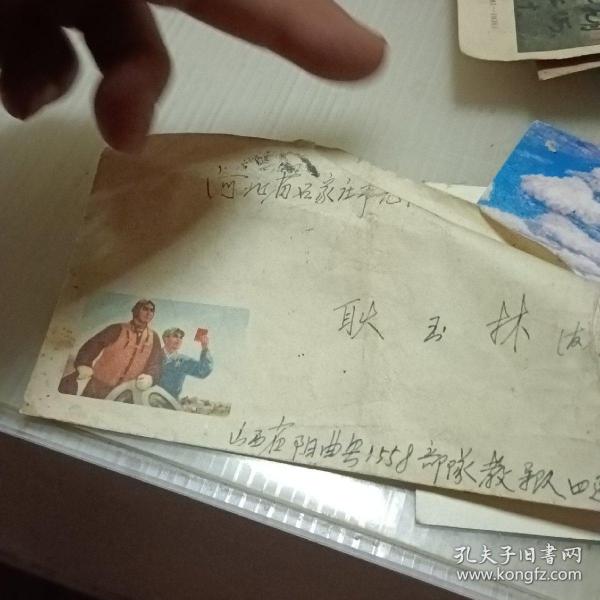 河北省石家庄市
耿玉林
山西省阳曲县1558部隊教导队四
孔夫子旧书网
www.kongfz.com